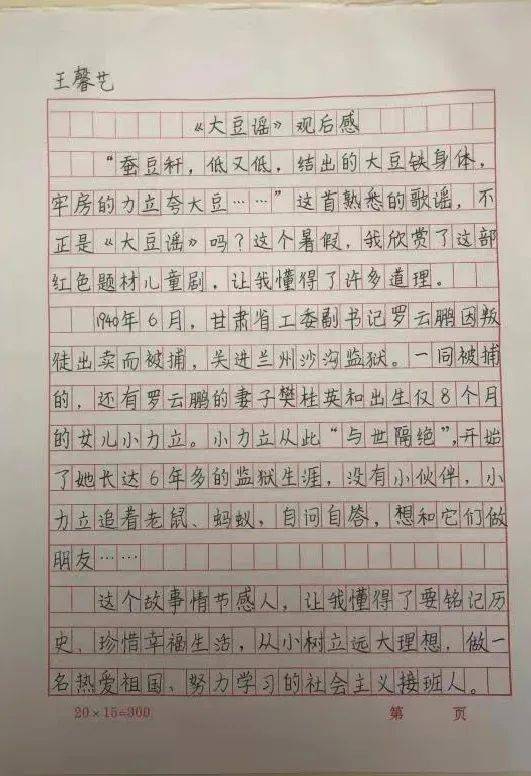 王馨艺
《大豆谣》观后感
“蚕豆秆，低又低，结出的大豆铁身体，
牢房的力立夸大豆……”这首熟悉的歌谣，不
正是《大豆谣》吗？这个暑假，我欣赏了这部
红色题材儿童剧，让我懂得了许多道理。
1940年6月，甘肃省工委副书记罗云鹏因叛
徒出卖而被捕，关进兰州沙沟监狱。一同被捕
的，还有罗云鹏的妻子樊桂英和出生仅8个月
的女儿小力立。小力立从此“与世隔绝”，开始
了她长达6年多的监狱生涯，没有小伙伴，小
力立追着老鼠、蚂蚁，自问自答，想和它们做
朋友……
这个故事情节感人，让我懂得了要铭记历
史、珍惜幸福生活，从小树立远大理想，做一
名热爱祖国、努力学习的社会主义接班人。
20×15=300 第 页